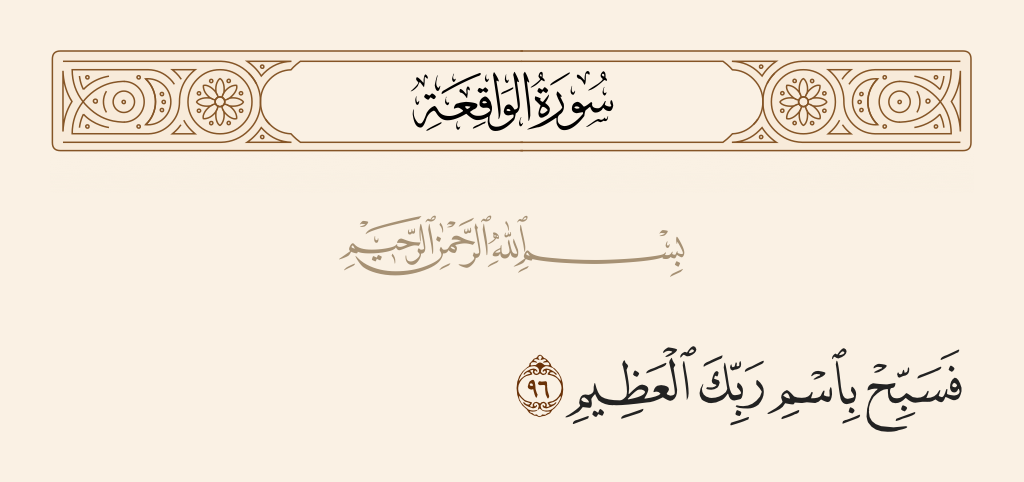 سُورَةُ الوَاقِعَةِ
بِسْمِ ٱللَّهِ ٱلرَّحْمَٰنِ ٱلرَّحِيمِ
فَسَبِّحْ بِٱسْمِ رَبِّكَ ٱلْعَظِيمِ ٩٦